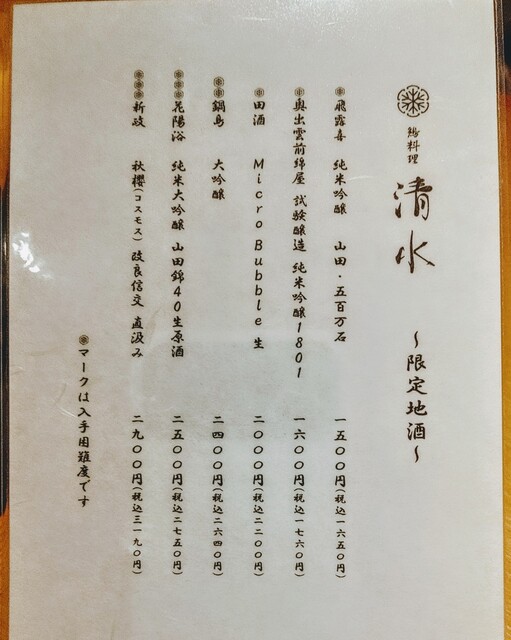 鶏料理 清水 ～限定地酒～
飛露喜 純米吟醸 山田・五百万石 一五〇〇円(税込一六五〇円)
奥出雲前綿屋 試験醸造 純米吟醸1801 一六〇〇円(税込一七六〇円)
田酒 Micro Bubble 生 二〇〇〇円(税込二二〇〇円)
鍋島 大吟醸 二四〇〇円(税込二六四〇円)
花陽浴 純米大吟醸 山田錦40生原酒 二五〇〇円(税込二七五〇円)
新政 秋櫻(コスモス) 改良信交 直汲み 二九〇〇円(税込三一九〇円)
マークは入手困難度です